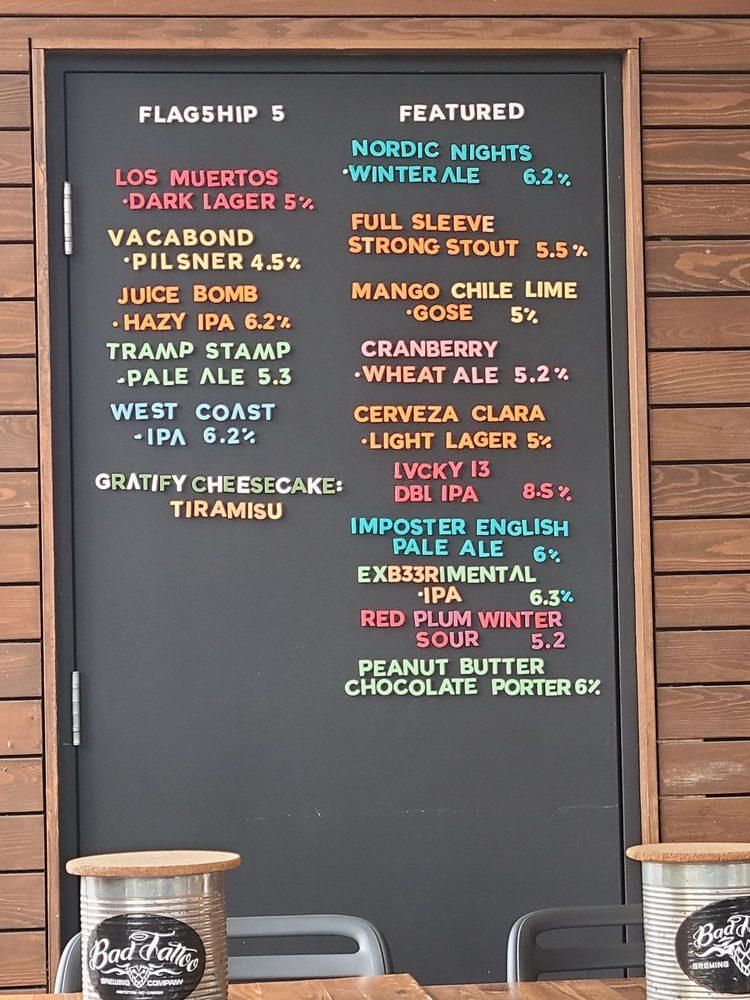 FLAG5HIP 5
LOS MUERTOS
·DARK LAGER 5%
VACABOND
·PILSNER 4.5%
JUICE BOMB
·HAZY IPA 6.2%
TRAMP STAMP
-PALE ALE 5.3
WEST COAST
-IPA 6.2%
GRATIFY CHEESECAKE:
TIRAMISU
FEATURED
NORDIC NIGHTS
·WINTER ALE 6.2%
FULL SLEEVE
STRONG STOUT 5.5%
MANGO CHILE LIME
·GOSE 5%
CRANBERRY
·WHEAT ALE 5.2%
CERVEZA CLARA
·LIGHT LAGER 5%
LVCKY 13
DBL IPA 8.5%
IMPOSTER ENGLISH
PALE ALE 6%
EXB33RIMENTAL
·IPA 6.3%
RED PLUM WINTER
SOUR 5.2
PEANUT BUTTER
CHOCOLATE PORTER 6%
Bad Tattoo
BREWING COMPANY
PENTICTON·BC·CANADA
Bad
BREWING